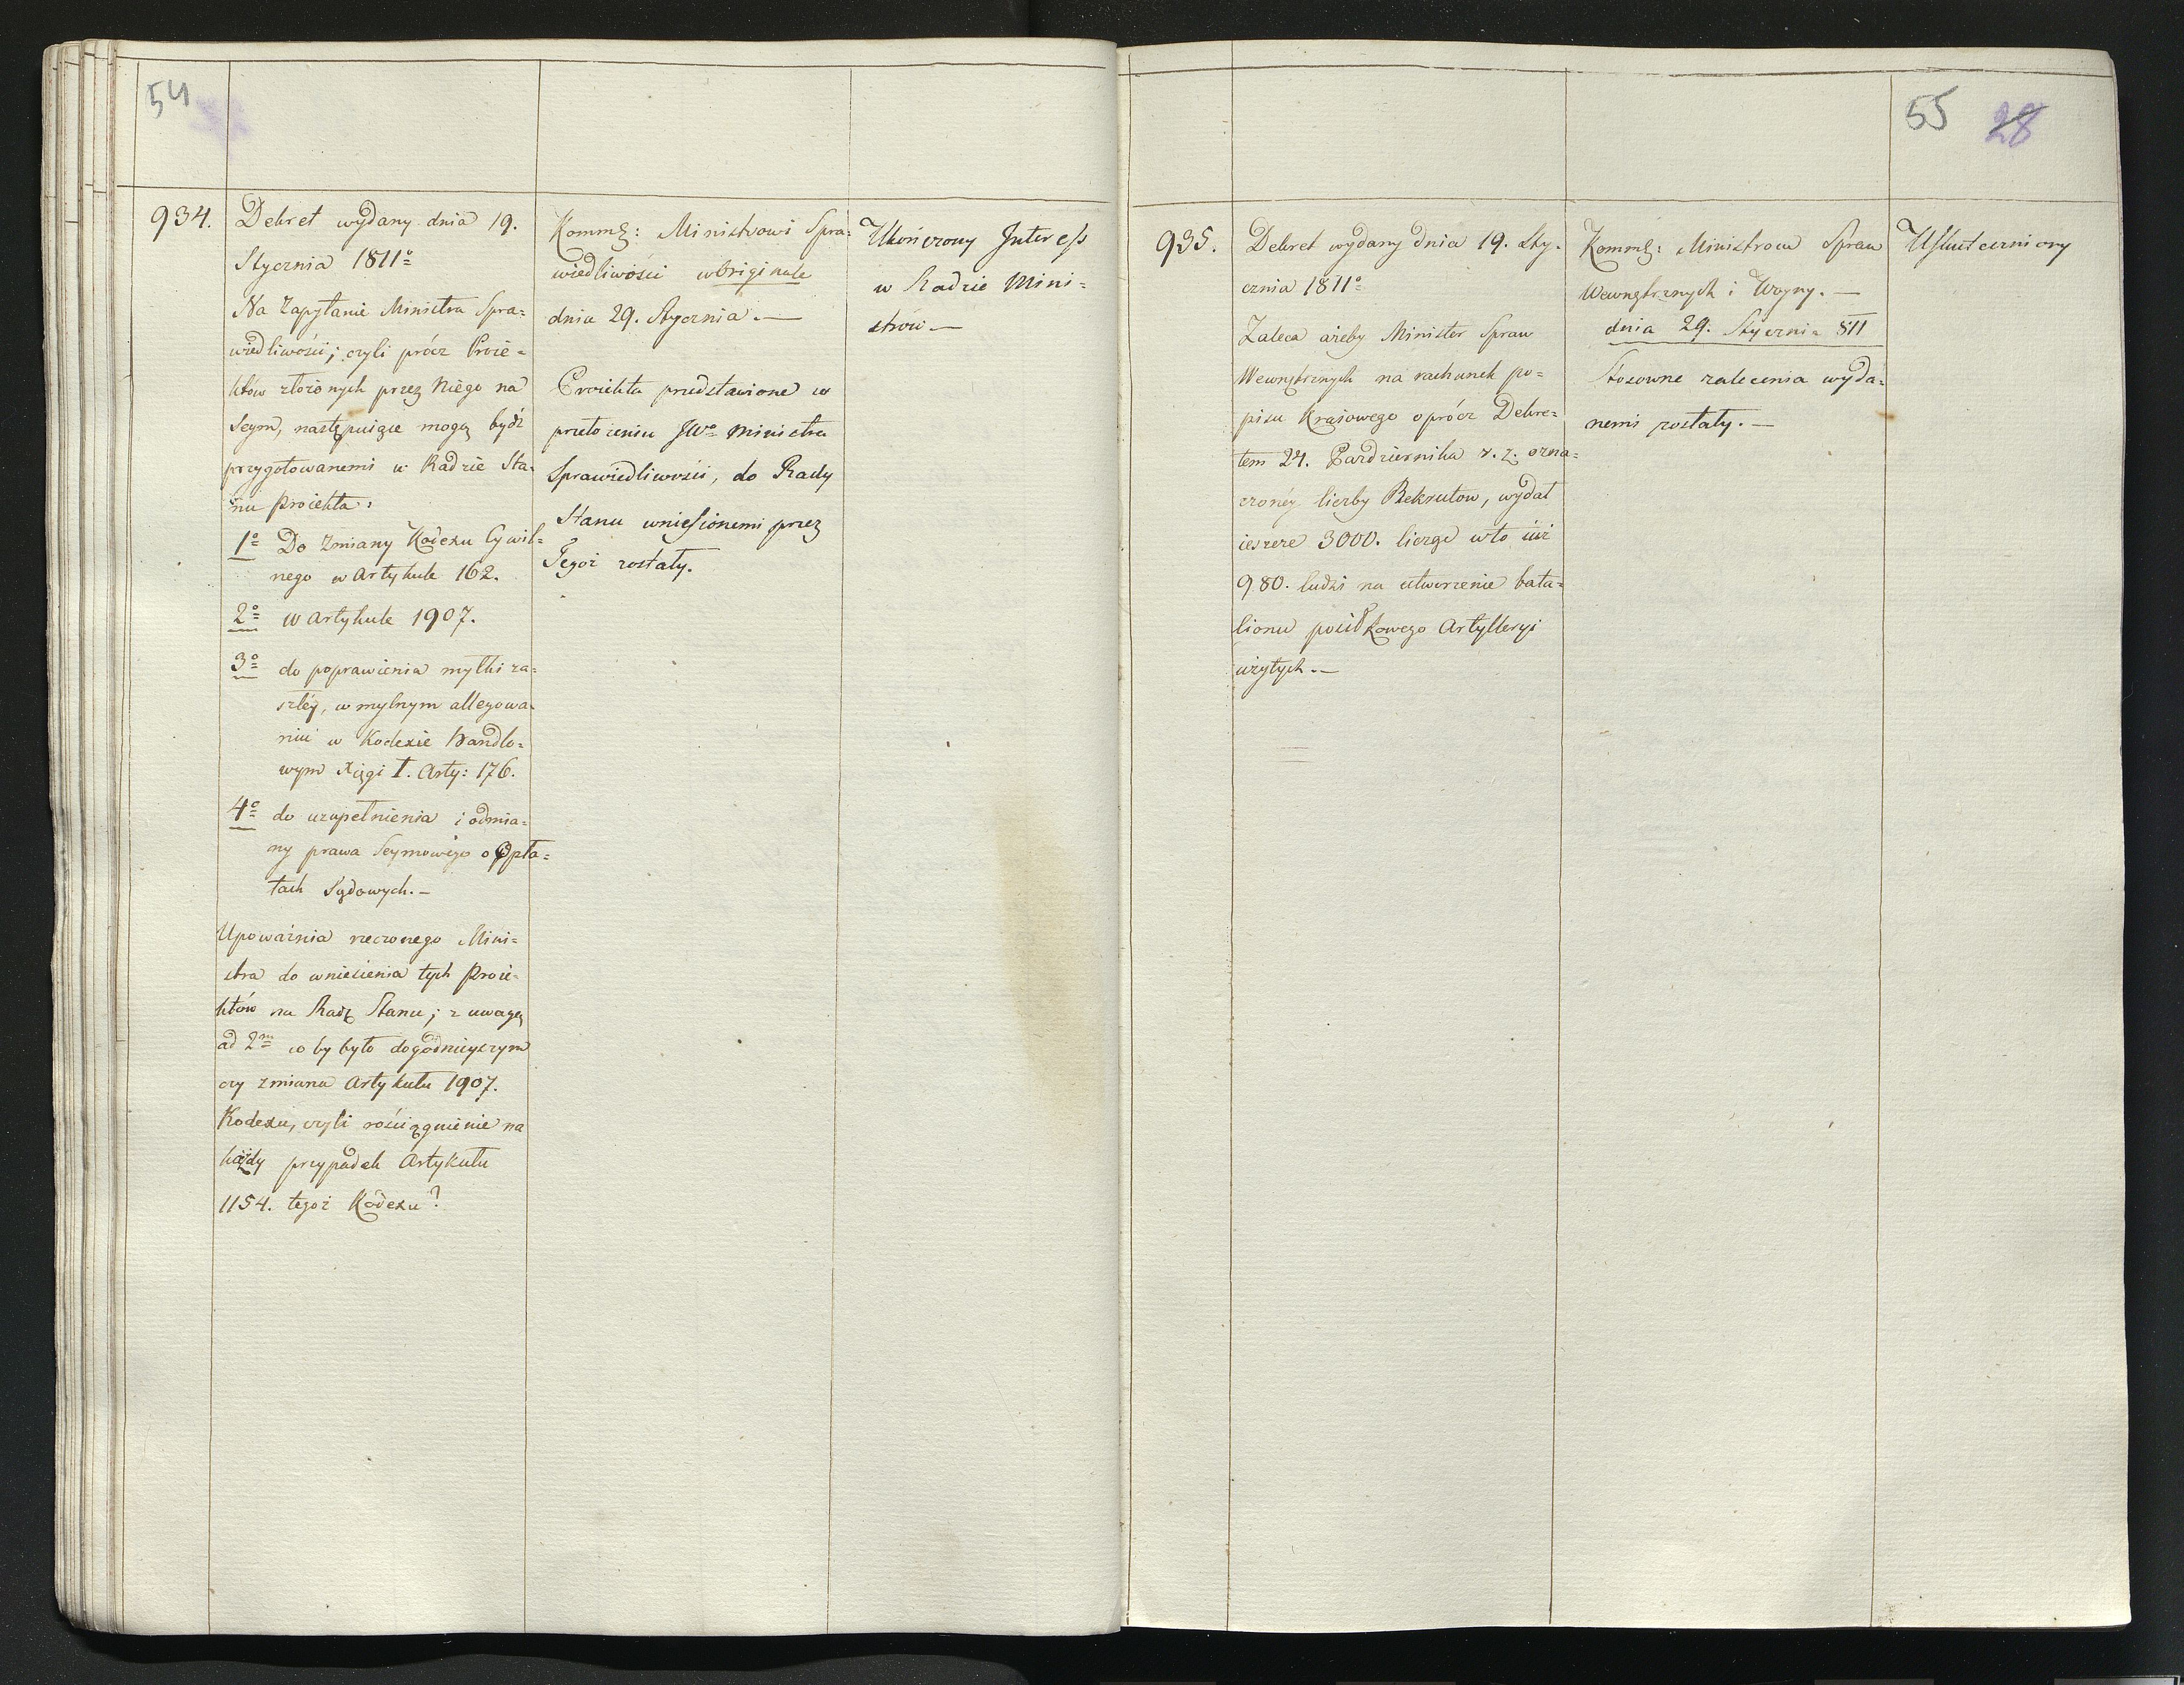 54
934.
Dekret wydany dnia 19.
Stycznia 1811º
Na Zapytanie Ministra Spra=
wiedliwości; czyli prócz Proie=
któw złożonych przez Niego na
Seym, następuiące mogą bydź
przygotowanemi w Radzie Sta=
nu Proiekta:
1º Do Zmiany Kodexu Cywil=
nego w Artykule 162.
2º w Artykule 1907.
3º do poprawienia myłki za=
szłéy, w mylnym allegowa=
niu w Kodexie Handlo=
wym Xięgi I. Arty: 176.
4º do uzupełnienia i odmia=
ny prawa Seymowego o Opła=
tach Sądowych. —
Upoważnia rzeczonego Mini=
stra do wniesienia tych Proie=
któw na Radę Stanu; z uwagą
ad 2m co by było dogodnieyszym
czy zmiana Artykułu 1907.
Kodexu, czyli rościągnienie na
każdy przypadek Artykułu
1154. tegoż Kodexu?
Kommę: Ministrowi Spra=
wiedliwości w Originale
dnia 29. Stycznia. —
Proiekta przedstawione w
przełożeniu JWo Ministra
Sprawiedliwości, do Rady
Stanu wniesionemi przez
Tegoż zostały.
Ukończony Interess
w Radzie Mini=
strów —
55 28
935.
Dekret wydany dnia 19. Sty=
cznia 1811º
Zaleca ażeby Minister Spraw
Wewnętrznych na rachunek po=
pisu Kraiowego oprócz Dekre=
tem 24. Października r. z. ozna=
czonéy liczby Rekrutow, wydał
ieszcze 3000. licząc w to iuż
980. ludzi na utworzenie bata=
lionu posiłkowego Artylleryi
użytych. —
Kommę: Ministrom Spraw
Wewnętrznych i Woyny. —
dnia 29. Stycznia 811
Stosowne zalecenia wyda=
nemi zostały. —
Uskuteczniony